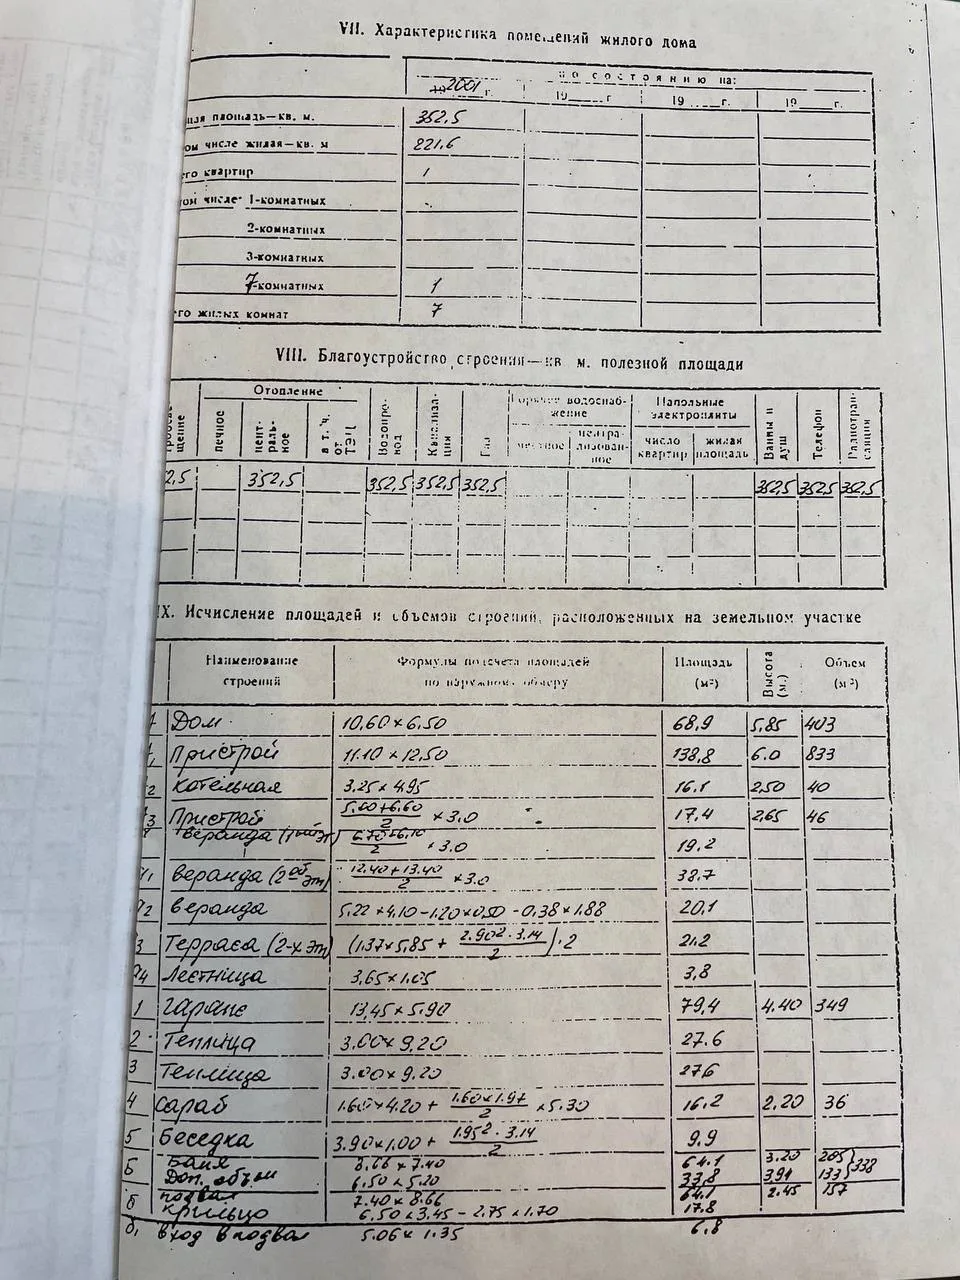 VII. Характеристика помещений жилого дома
по состоянию на:
2001 г. 19 г 19 г. 19 г.
площадь—кв. м. 352,5
ом числе жилая—кв. м 221,6
его квартир 1
том числе: 1-комнатных
2-комнатных
3-комнатных
7-комнатных 1
его жилых комнат 7
VIII. Благоустройство строения—кв м. полезной площади
щение печное Отопление цент-раль-ное в т. ч. от ТЭЦ Водопро-вод Канализа-ция Газ Горячее водоснаб-жение местное центра-лизован-ное Напольные электроплиты число квартир жилая площадь Ванны и душ Телефон Радиотран-сляция
2,5 352,5 352,5 352,5 352,5 352,5 352,5 352,5
IX. Исчисление площадей и объемов строений, расположенных на земельном участке
Наименование строений Формулы подсчета площадей по наружном. обмеру Площадь (м²) Высота (м.) Объем (м³)
Дом 10.60 × 6.50 68,9 5,85 403
Пристрой 11.10 × 12,50 138,8 6.0 833
2 Котельная 3.25 × 4.95 16.1 2,50 40
3 Пристрой 5.00+6.60 / 2 × 3.0 17,4 2,65 46
веранда (1ый эт) 6.70+6.10 / 2 × 3.0 19.2
1 веранда (2ой эт) 12.40 + 13.40 / 2 × 3.0 38.7
2 веранда 5.22 × 4.10 – 1.20 × 0.50 – 0.38 × 1.88 20,1
3 Терраса (2-х эт) (1.37 × 5.85 + 2.90² · 3.14 / 2) · 2 21.2
4 Лестница 3,65 × 1.05 3,8
1 Гараж 13,45 × 5.90 79,4 4.40 349
2 Теплица 3.00 × 9,20 27.6
3 Теплица 3.00 × 9.20 27.6
4 Сарай 1.60 × 4.20 + 1.60 × 1.97 / 2 × 5.30 16.2 2,20 36
5 Беседка 3.90 × 1.00 + 1.95² · 3.14 / 2 9.9
Б Баня 8.66 × 7.40 64.1 3.20 205
Доп. объем 6.50 × 5.20 33,8 3,91 133 } 338
подвал 7.40 × 8.66 64,1 2.45 157
б крыльцо 6.50 × 3.45 – 2.75 × 1.70 17.8
б₁ вход в подвал 5.06 × 1.35 6.8